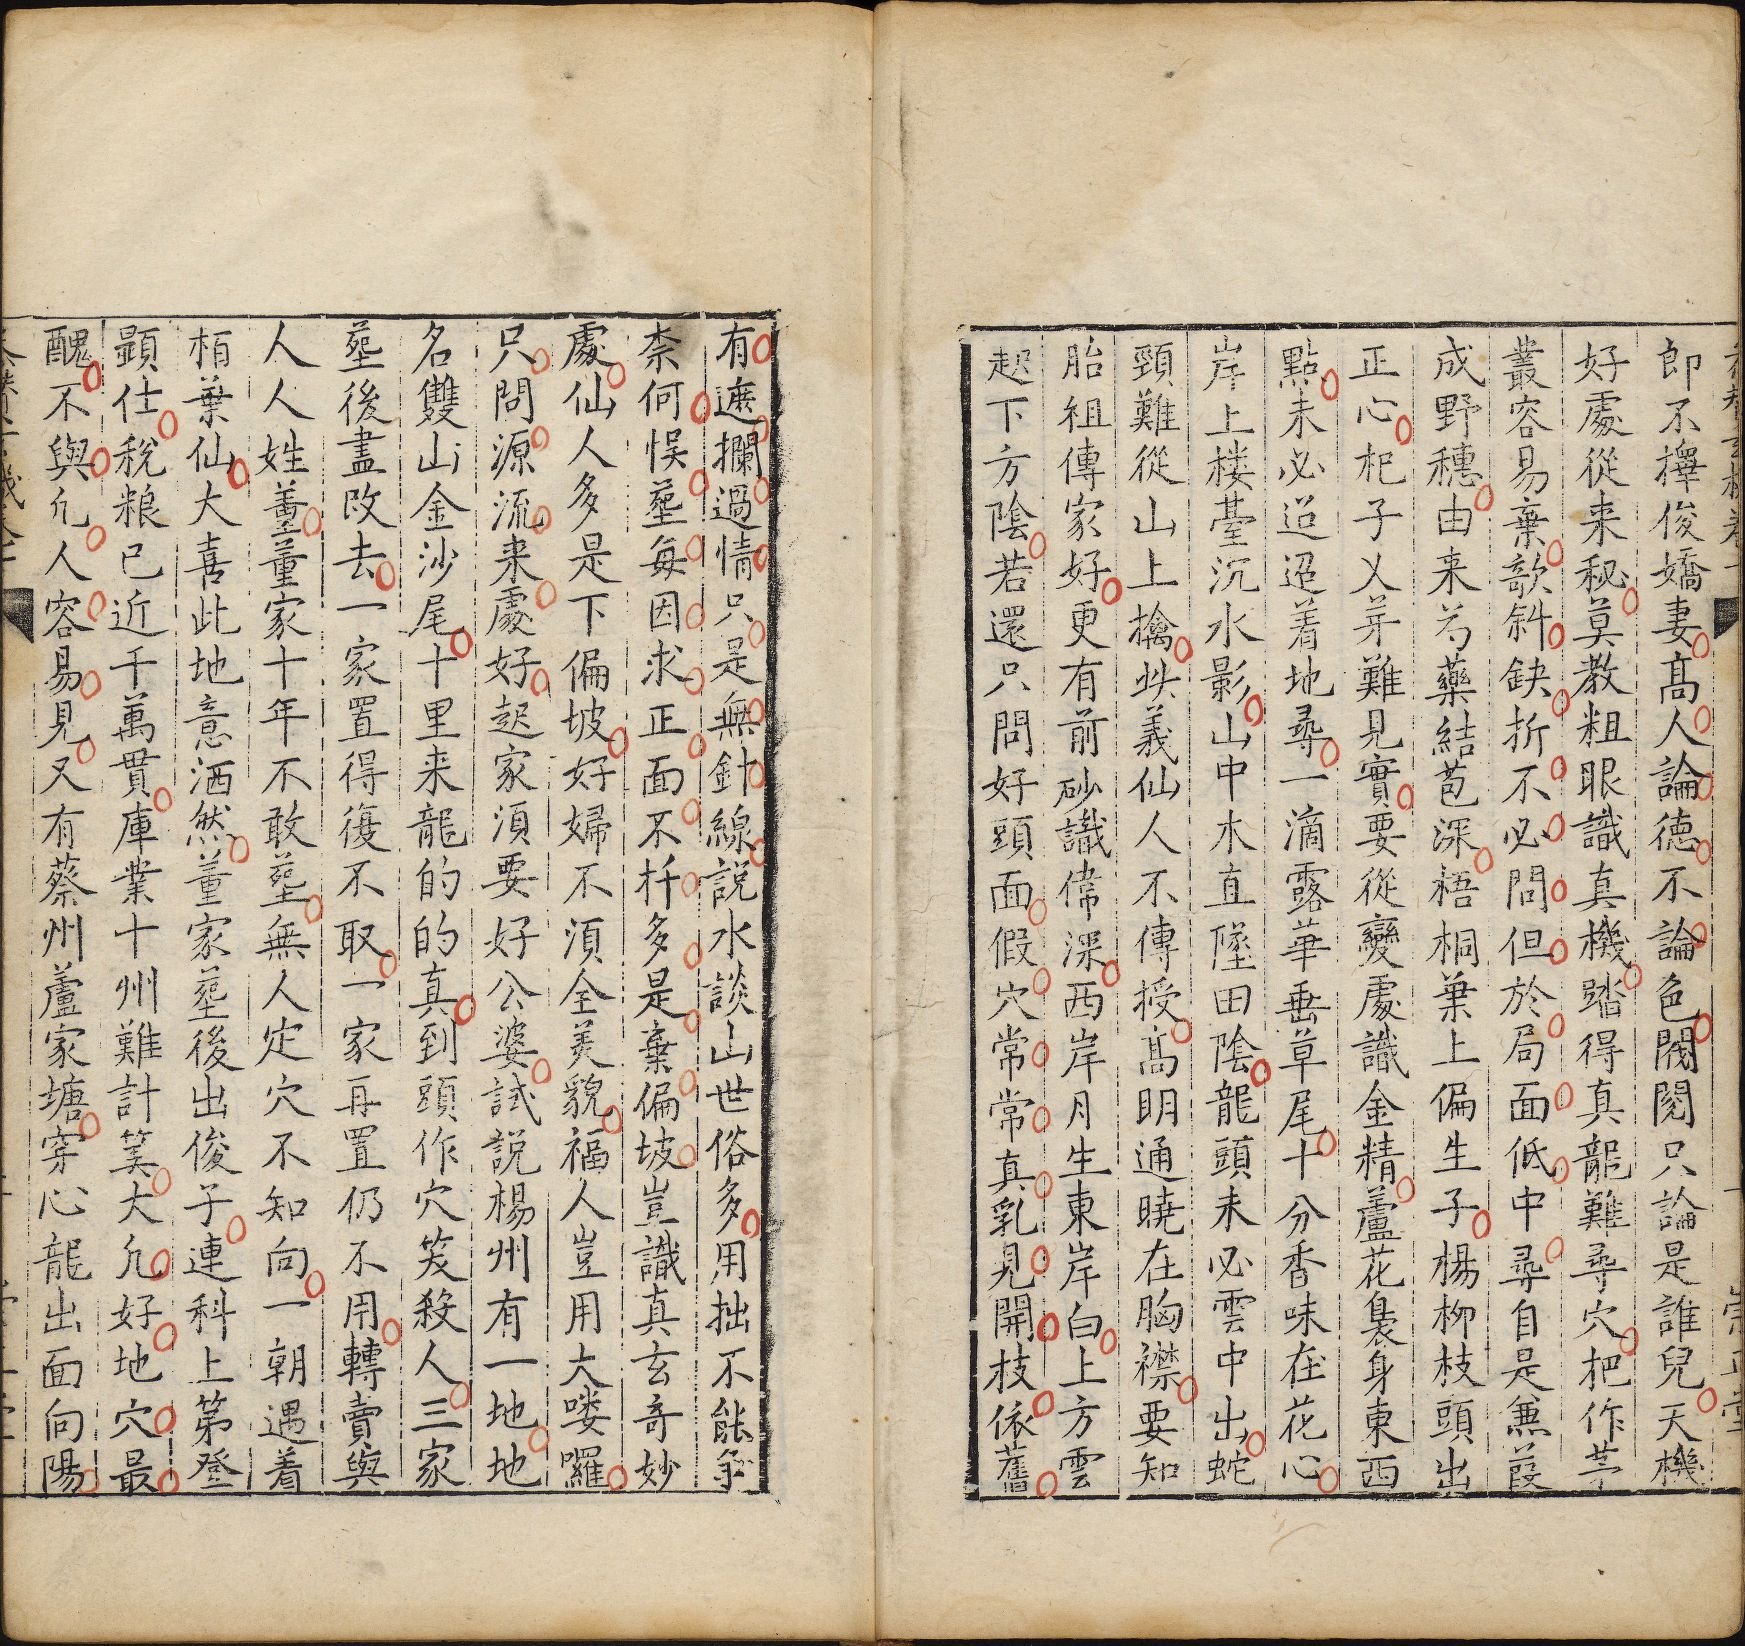 郎不擇俊嬌妻高人論德不論色閥閱只論是誰兒天機
好處從来秘莫教粗眼識真機踏得真龍難尋穴把作茅
叢容易棄欹斜缺折不必問但於局面低中尋自是蒹葭
成野穗由来芍藥結苞深梧桐葉上偏生子楊柳枝頭出
正心杞子乂芽難見實要從變處識金精蘆花裊身東西
點未必迢迢着地尋一滴露華垂草尾十分香味在花心
岸上楼臺沉水影山中木直墜田陰龍頭未必雲中出蛇
頸難從山上擒此義仙人不傳授高明通曉在胸襟要知
胎祖傳家好更有前砂識俻深西岸月生東岸白上方雲
起下方陰若還只問好頭面假穴常常真乳見開枝依舊
有遮攔過情只是無針線說水談山世俗多用拙不能爭
柰何悮塟每因求正面不杄多是棄偏坡豈識真玄奇妙
處仙人多是下偏坡好婦不須全美貌福人豈用大嘍囉
只問源流来處好起家須要好公婆試說楊州有一地地
名雙山金沙尾十里来龍的的真到頭作穴笑殺人三家
塟後盡改去一家置得復不取一家再置仍不用轉賣與
人人姓董董家十年不敢塟無人定穴不知向一朝遇着
栢葉仙大喜此地意洒然董家塟後出俊子連科上第登
顕仕稅粮已近千萬貫庫業十州難計筭大凢好地穴最
醜不與凢人容易見又有蔡州蘆家塘穿心龍出面向陽